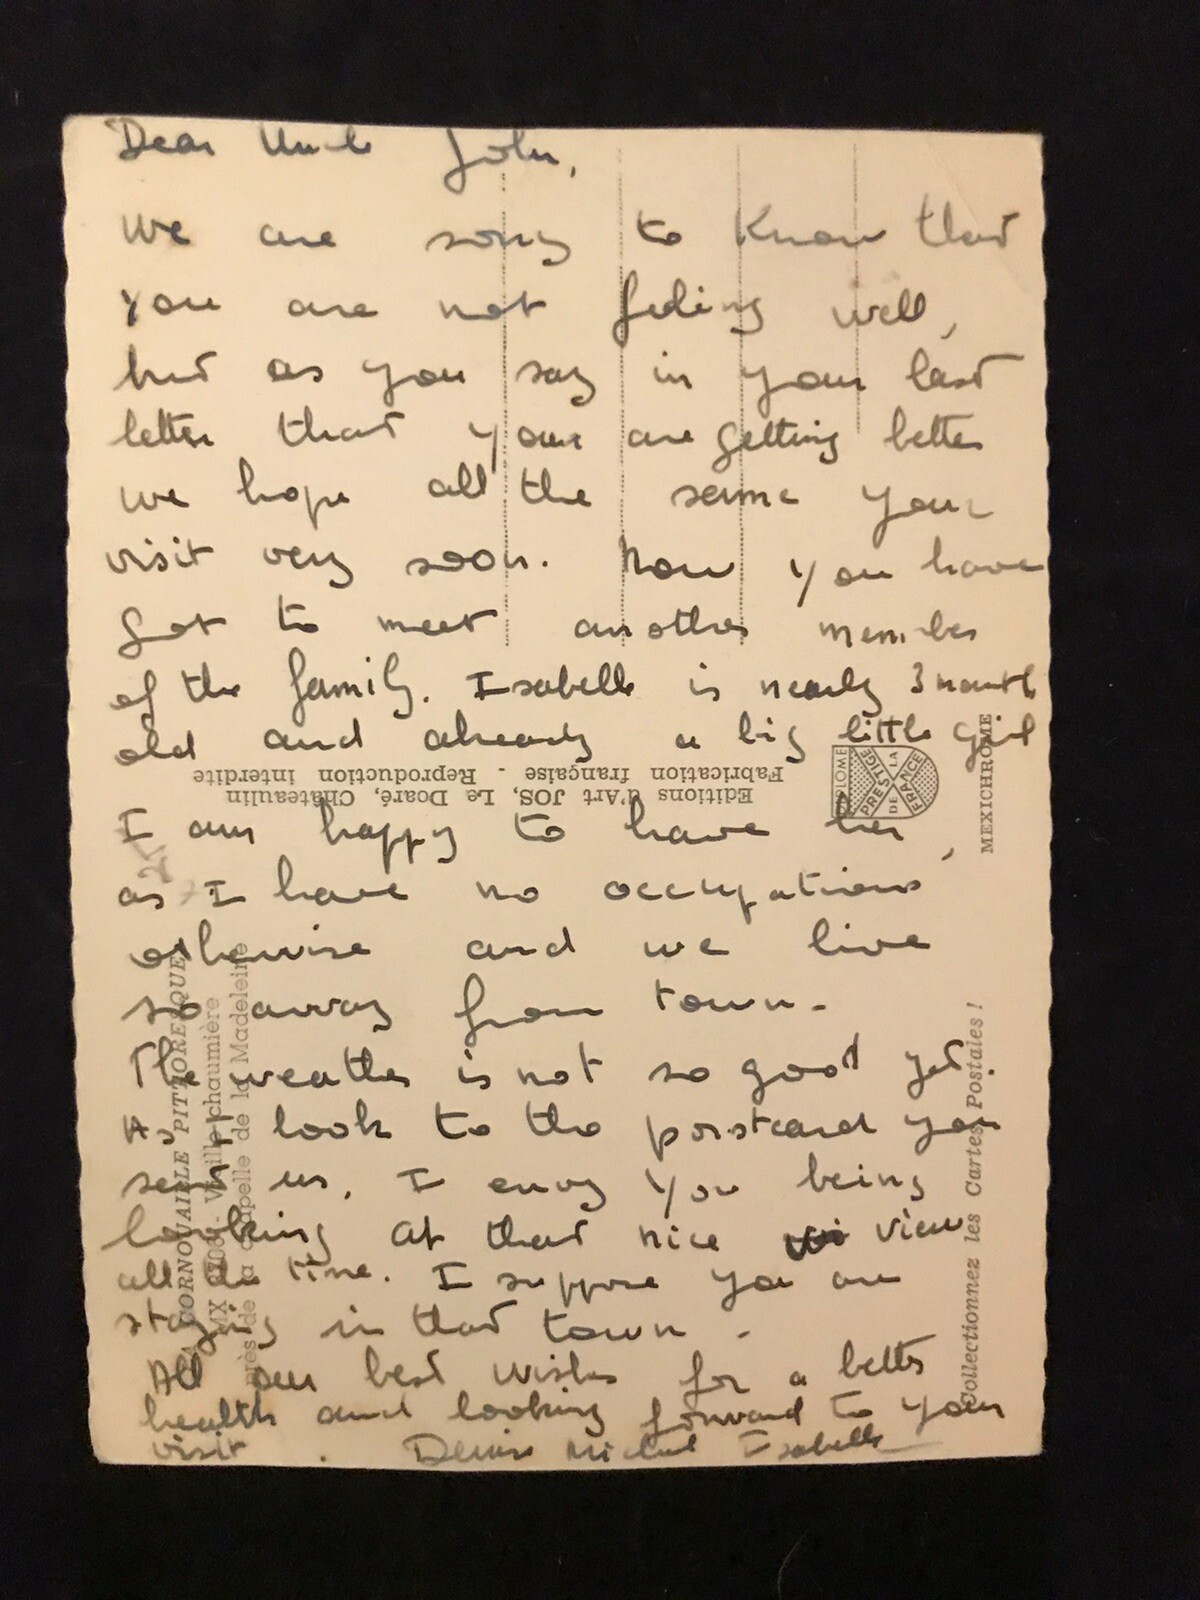 Dear Uncle John,
We are sorry to know that
you are not feeling well,
but as you say in your last
letter that your are getting better
we hope all the same your
visit very soon. Now you have
got to meet another member
of the family. Isabelle is nearly 3 month
old and already a big little girl
I am happy to have her,
as I have no occupations
otherwise and we live
so away from town.
The weather is not so good yet.
As I look to the postcard you
sent us, I envy you being
looking at that nice view
all the time. I suppose you are
staying in that town.
All our best wishes for a better
health and looking forward to your
visit. Denise Michel Isabelle
Editions d'Art JOS, Le Doaré, Châteaulin
Fabrication française - Reproduction interdite
DIPLOME PRESTIGE DE LA FRANCE
MEXICHROME
Collectionnez les Cartes Postales !
CORNOUAILLE PITTORESQUE
MX - Vieille chaumière
près de la chapelle de la Madeleine